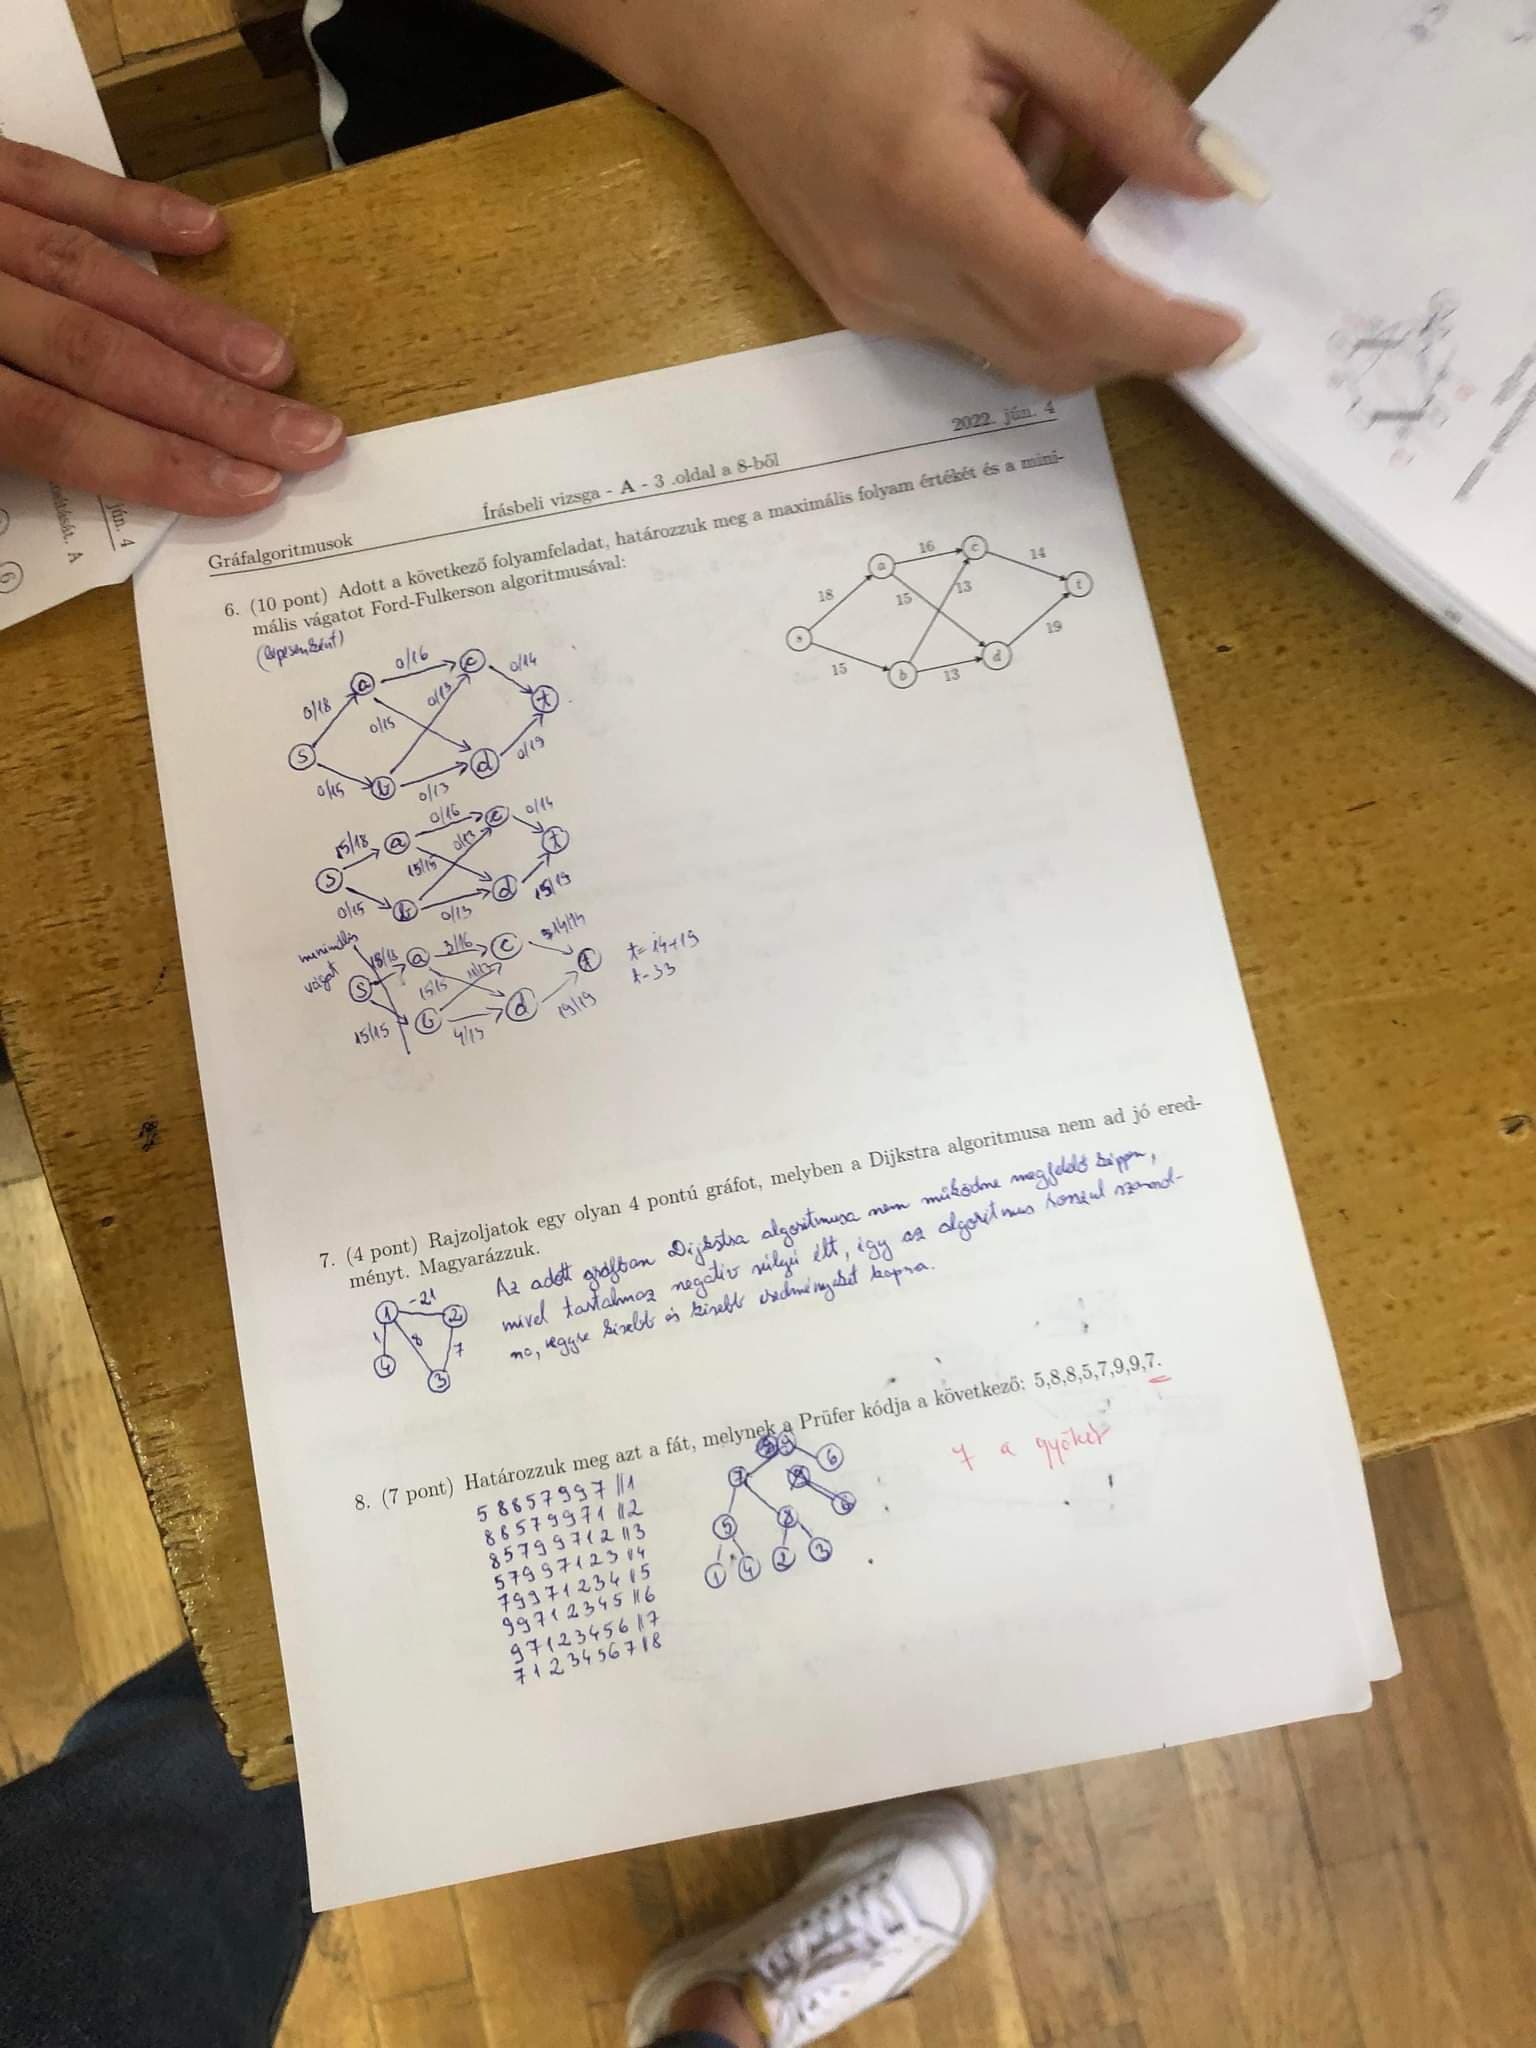 jún. 4
Gráfalgoritmusok
Írásbeli vizsga - A - 3 .oldal a 8-ből
2022. jún. 4
6. (10 pont) Adott a következő folyamfeladat, határozzuk meg a maximális folyam értékét és a mini-
mális vágatot Ford-Fulkerson algoritmusával:
s a b c d t
18 15 16 15 13 13 14 19
s a b c d t
0/18 0/15 0/16 0/15 0/13 0/13 0/14 0/19
s a b c d t
15/18 0/15 0/16 15/15 0/13 0/13 0/14 15/19
minimális
vágat
s a b c d t
18/18 15/15 3/16 15/15 11/13 4/13 14/14 19/19
t=14+19
t=33
7. (4 pont) Rajzoljatok egy olyan 4 pontú gráfot, melyben a Dijkstra algoritmusa nem ad jó ered-
ményt. Magyarázzuk.
Az adott gráfban Dijkstra algoritmusa nem működne megfelelő képpen,
mivel tartalmaz negatív súlyú élt, így az algoritmus rosszul számol-
na, egyre kisebb és kisebb eredményeket kapva.
1 -21 2
1 8 7
4 3
8. (7 pont) Határozzuk meg azt a fát, melynek a Prüfer kódja a következő: 5,8,8,5,7,9,9,7.
7 a gyökér
5 8 8 5 7 9 9 7 || 1
8 8 5 7 9 9 7 1 || 2
8 5 7 9 9 7 1 2 || 3
5 7 9 9 7 1 2 3 || 4
7 9 9 7 1 2 3 4 || 5
9 9 7 1 2 3 4 5 || 6
9 7 1 2 3 4 5 6 || 7
7 1 2 3 4 5 6 7 || 8
9
7 6
5 8
1 4 2 3